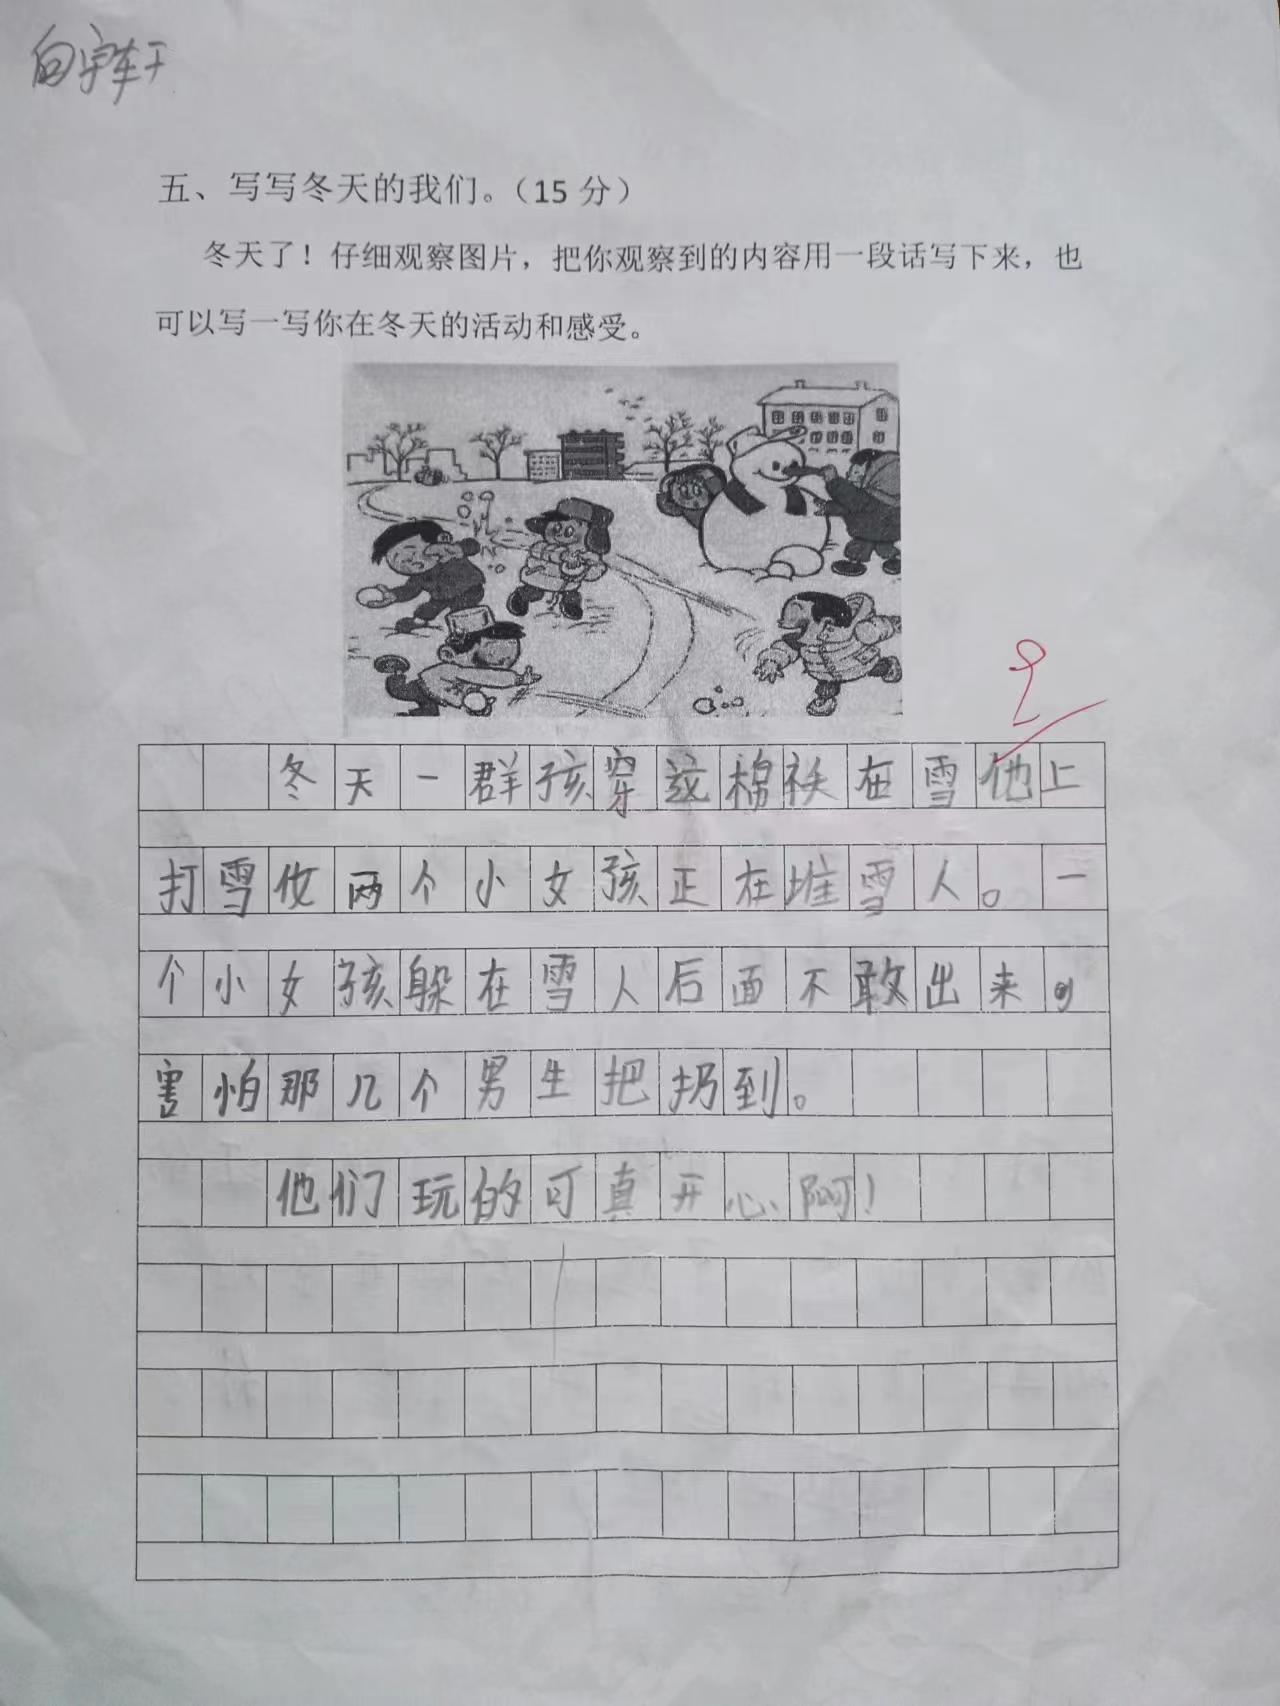 白宇轩
五、写写冬天的我们。(15 分)
冬天了！仔细观察图片，把你观察到的内容用一段话写下来，也
可以写一写你在冬天的活动和感受。
冬天一群孩穿这棉袄在雪他上
打雪仗两个小女孩正在堆雪人。一
个小女孩躲在雪人后面不敢出来，
害怕那几个男生把扔到。
他们玩的可真开心啊！